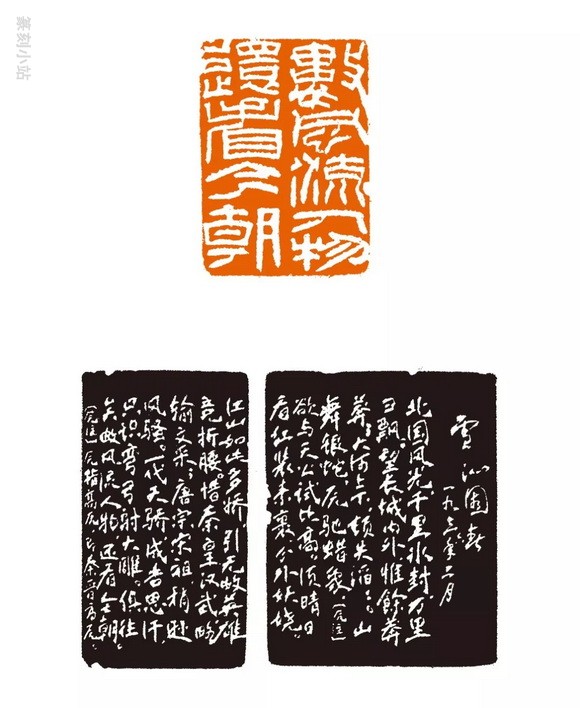 篆刻小站
數風流人物
還看今朝
雪 沁園春
一九三六年二月
北国风光千里冰封万里
雪飘望长城内外惟餘莽
莽大河上下顿失滔滔山
舞银蛇原驰蜡象（原注）
欲与天公试比高须晴日
看红装素裹分外妖娆
江山如此多娇引无数英雄
竞折腰惜秦皇汉武略
输文采唐宗宋祖稍逊
风骚一代天骄成吉思汗
只识弯弓射大雕俱往
矣数风流人物还看今朝
（原注）原指高原即秦晋高原